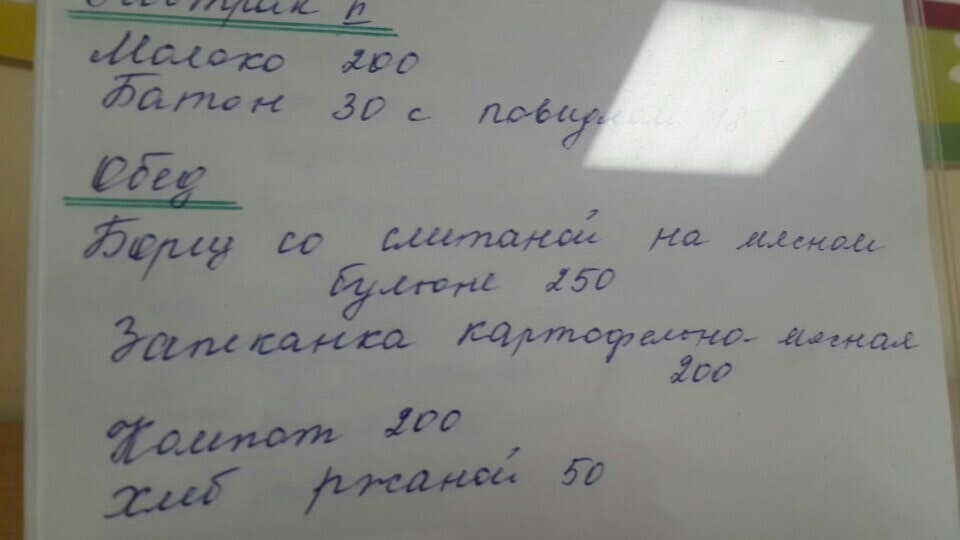 Завтрак II
Молоко 200
Батон 30 с повидлом 18
Обед
Борщ со сметаной на мясном
бульоне 250
Запеканка картофельно-мясная
200
Компот 200
Хлеб ржаной 50